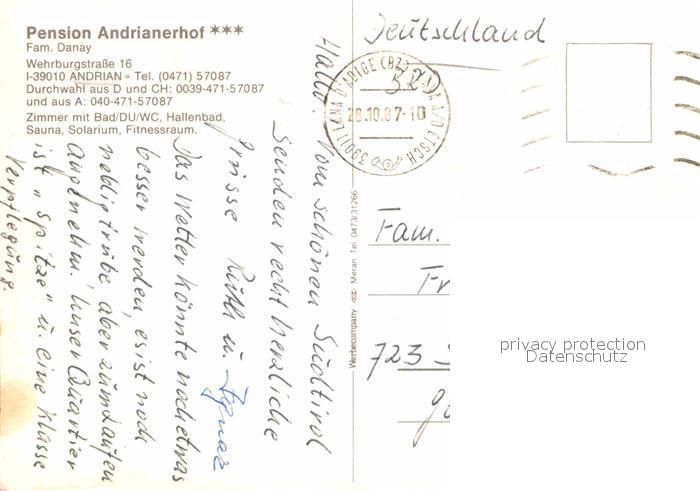 Pension Andrianerhof ***
Fam. Danay
Wehrburgstraße 16
I-39010 ANDRIAN - Tel. (0471) 57087
Durchwahl aus D und CH: 0039-471-57087
und aus A: 040-471-57087
Zimmer mit Bad/DU/WC, Hallenbad,
Sauna, Solarium, Fitnessraum.
Hallo! Vom schönen Südtirol
senden recht herzliche
Grüsse Ruth u. Ignaz
Das Wetter könnte noch etwas
besser werden, es ist noch
neblig trübe, aber zum Laufen
angenehm. Unser Quartier
ist "Spitze" u. eine klasse
Verpflegung.
Werbecompany Meran Tel. 0473/31266
Deutschland
39011 LANA D'ADIGE (BZ) LANA A/D ETSCH
28.10.87-10
Fam.
Fr
723
privacy protection
Datenschutz